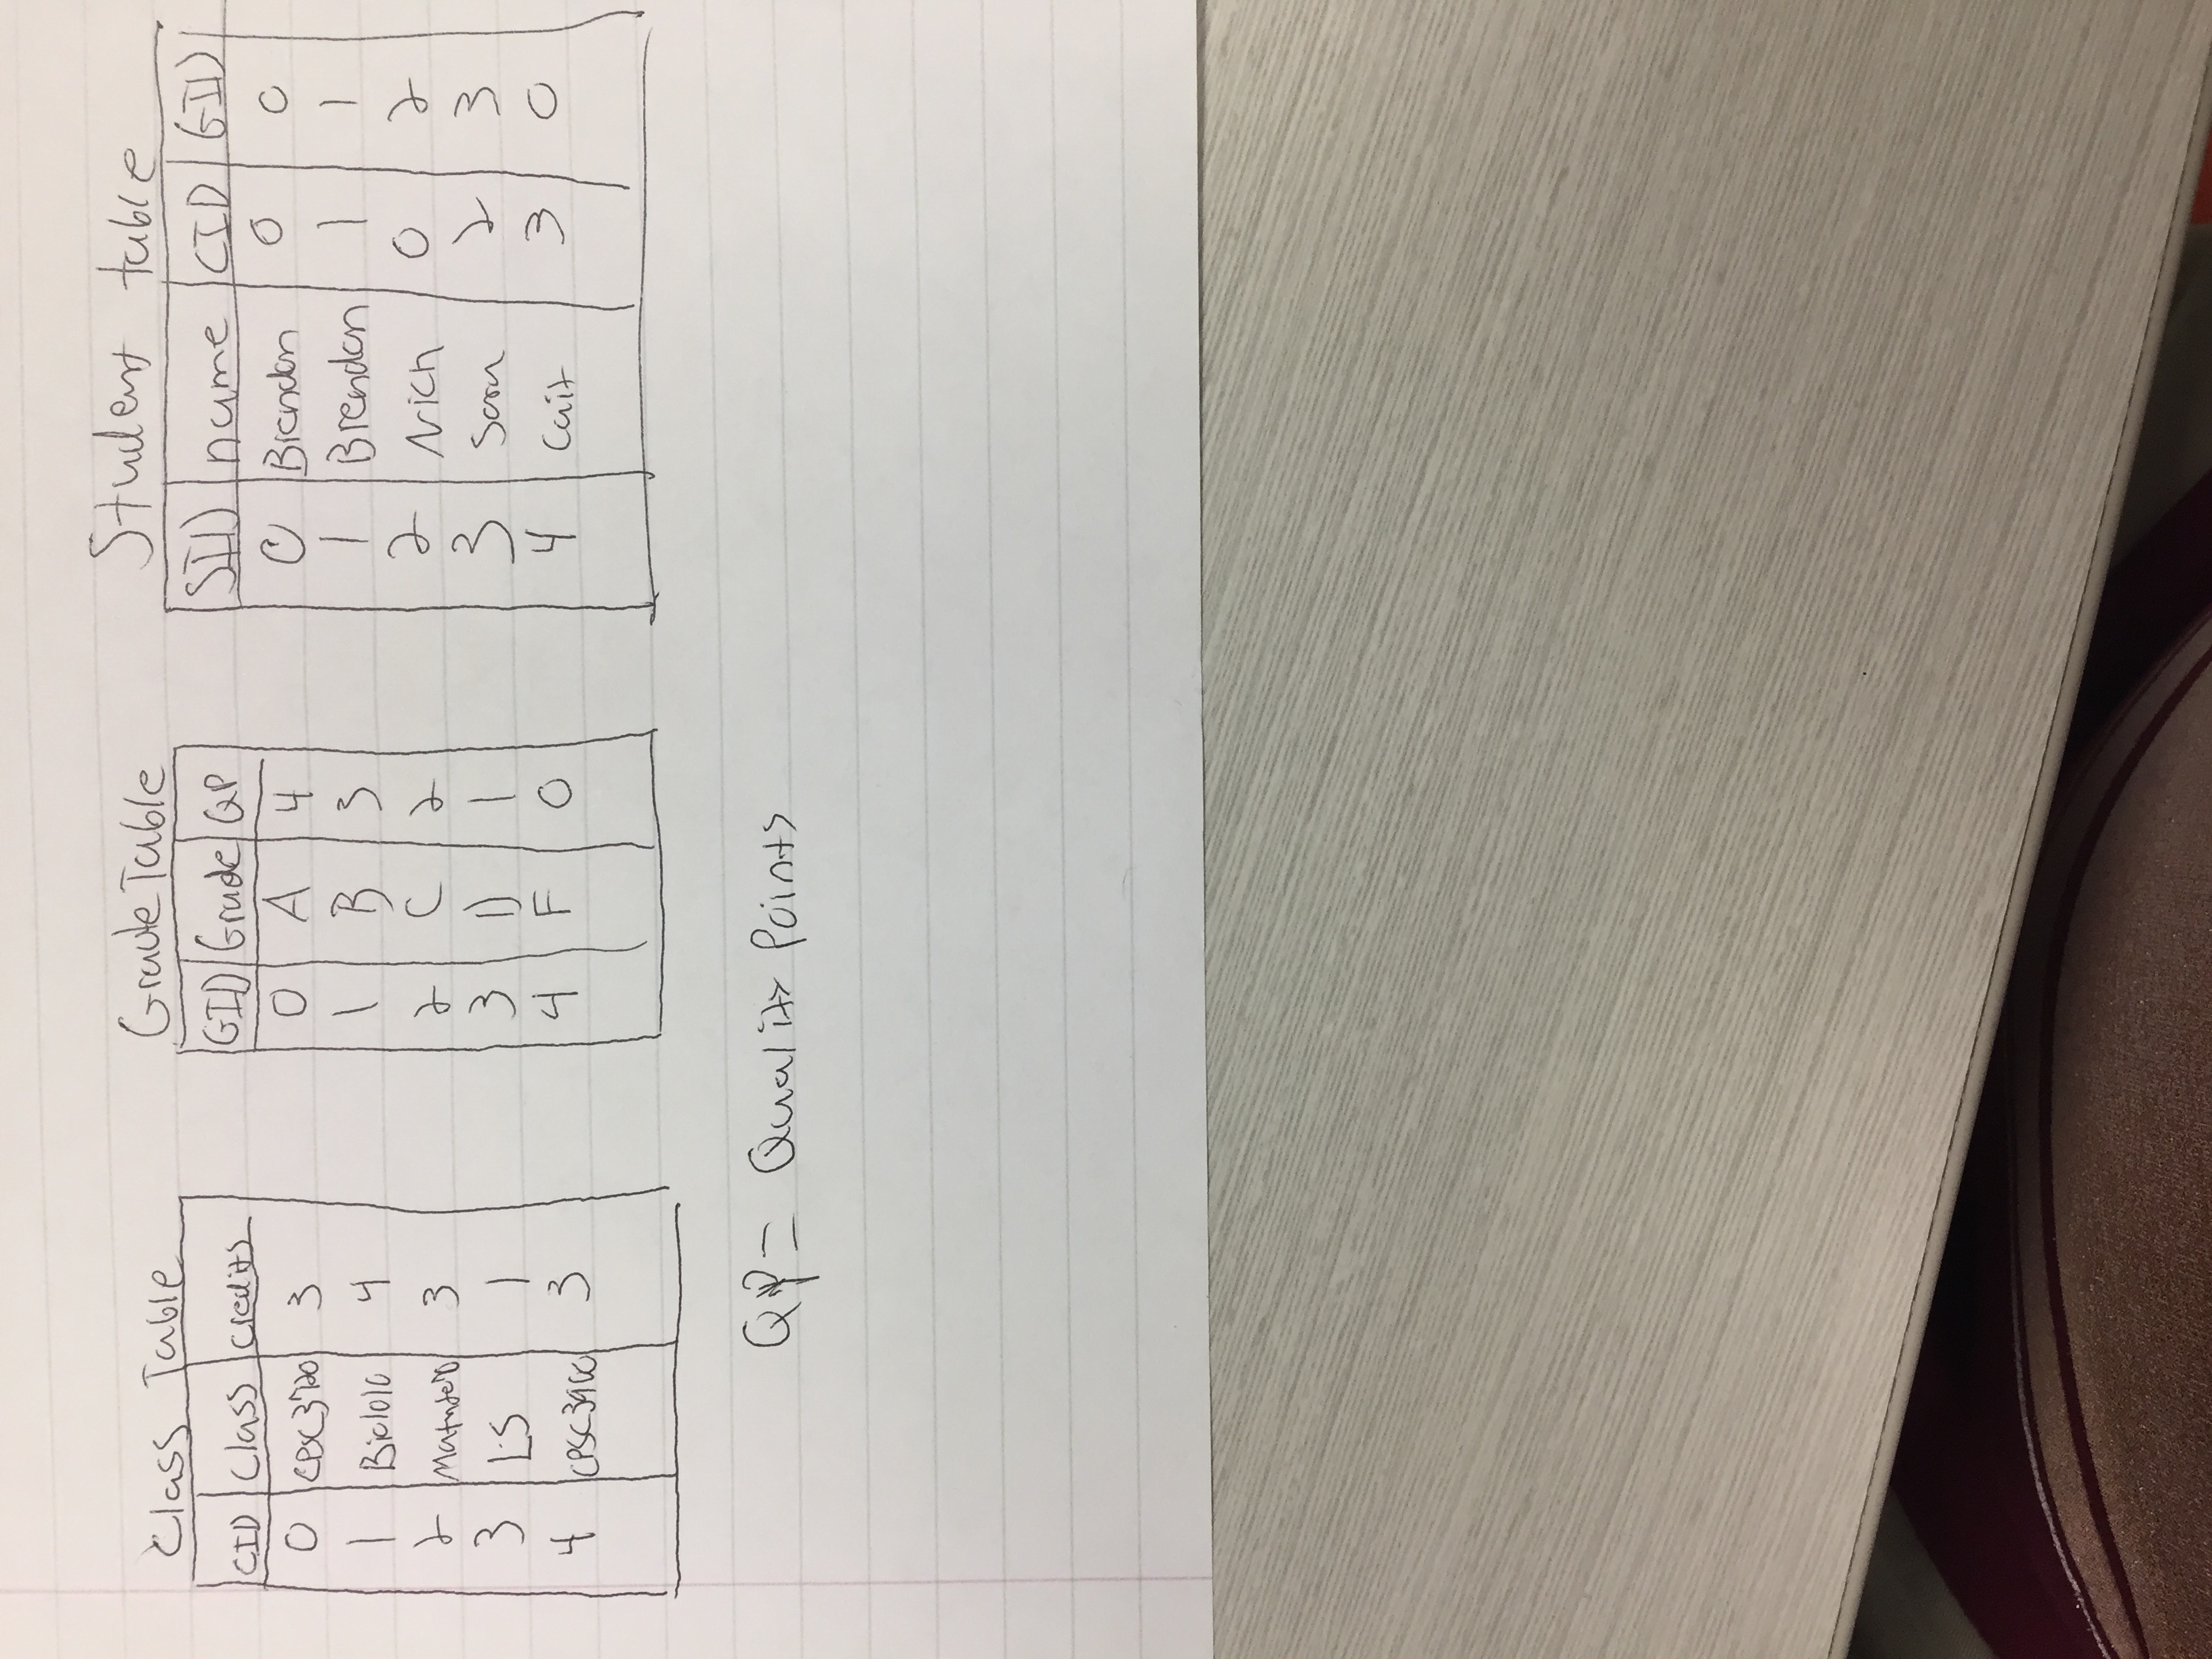 Class Table
CID Class Credits
0 CPSC3720 3
1 Bio1010 4
2 3
3 LS 1
4 CPSC3900 3
Grade Table
GID Grade QP
0 A 4
1 B 3
2 C 2
3 D 1
4 F 0
Student table
SID name CID GID
0 Brendon 0 0
1 Brendon 1 1
2 Nich 0 2
3 Sara 2 3
4 Cait 3 0
QP = Quality Points